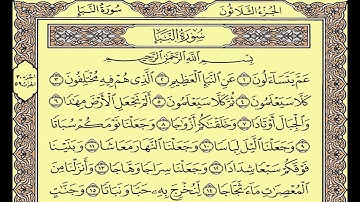 سورة النبإ الجزء الثلاثون
سورة النبإ
بسم الله الرحمن الرحيم
عم يتساءلون ١ عن النبإ العظيم ٢ الذي هم فيه مختلفون ٣
كلا سيعلمون ٤ ثم كلا سيعلمون ٥ ألم نجعل الأرض مهدا ٦
والجبال أوتادا ٧ وخلقنكم أزوجا ٨ وجعلنا نومكم سباتا
٩ وجعلنا اليل لباسا ١٠ وجعلنا النهار معاشا ١١ وبنينا
فوقكم سبعا شدادا ١٢ وجعلنا سراجا وهاجا ١٣ وأنزلنا من
المعصرت ماء ثجاجا ١٤ لنخرج به حبا ونباتا ١٥ وجنت